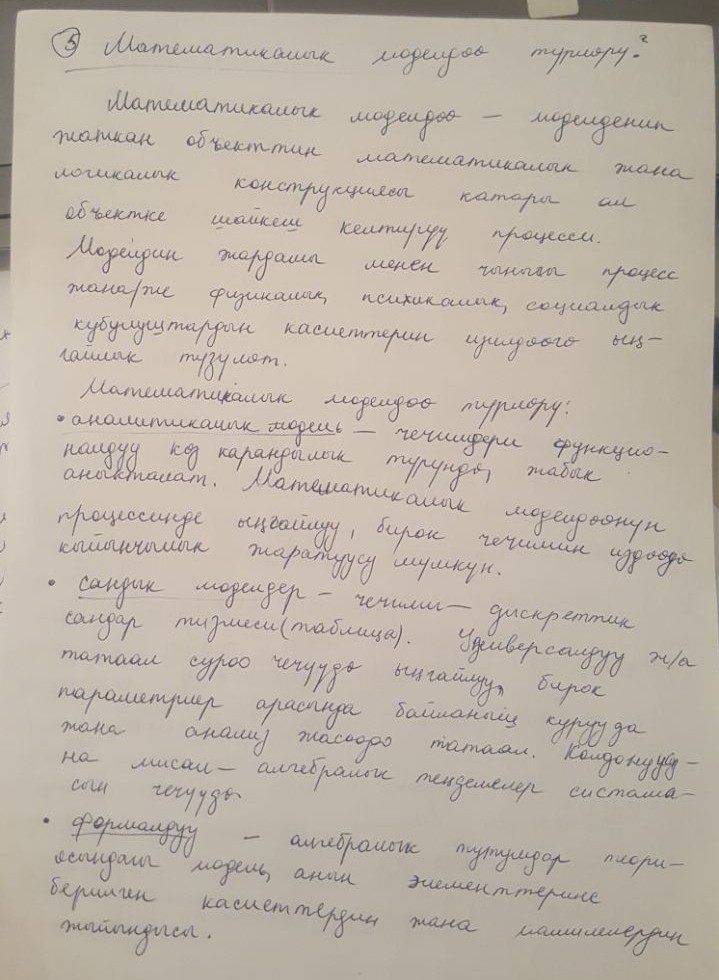 5 Математикалык моделдөө түрлөрү?
Математикалык моделдөө — моделденип
жаткан объекттин математикалык жана
логикалык конструкциясы катары ал
объектке шайкеш келтирүү процесси.
Моделдин жардамы менен чыныгы процесс
жана/же физикалык, психикалык, социалдык
кубулуштардын касиеттерин изилдөөгө ың-
гайлык түзүлөт.
Математикалык моделдөө түрлөрү:
• аналитикалык модель — чечимдери функцио-
налдуу көз карандылык түрүндө, жабык
аныкталат. Математикалык моделдөөнүн
процессинде ыңгайлуу, бирок чечимин издөөдө
кыйынчылык жаратуусу мүмкүн.
• сандык моделдер — чечими — дискреттик
сандар тизмеси (таблица). Универсалдуу ж/а
татаал суроо чечүүдө ыңгайлуу, бирок
параметрлер арасында байланыш курууда
жана анализ жасоодо татаал. Колдонуусу-
на мисал — алгебралык теңдемелер система-
сын чечүүдө
• формалдуу — алгебралык тутумдар теори-
ясындагы модель, анын элементтерине
берилген касиеттердин жана мамилелердин
жыйындысы.